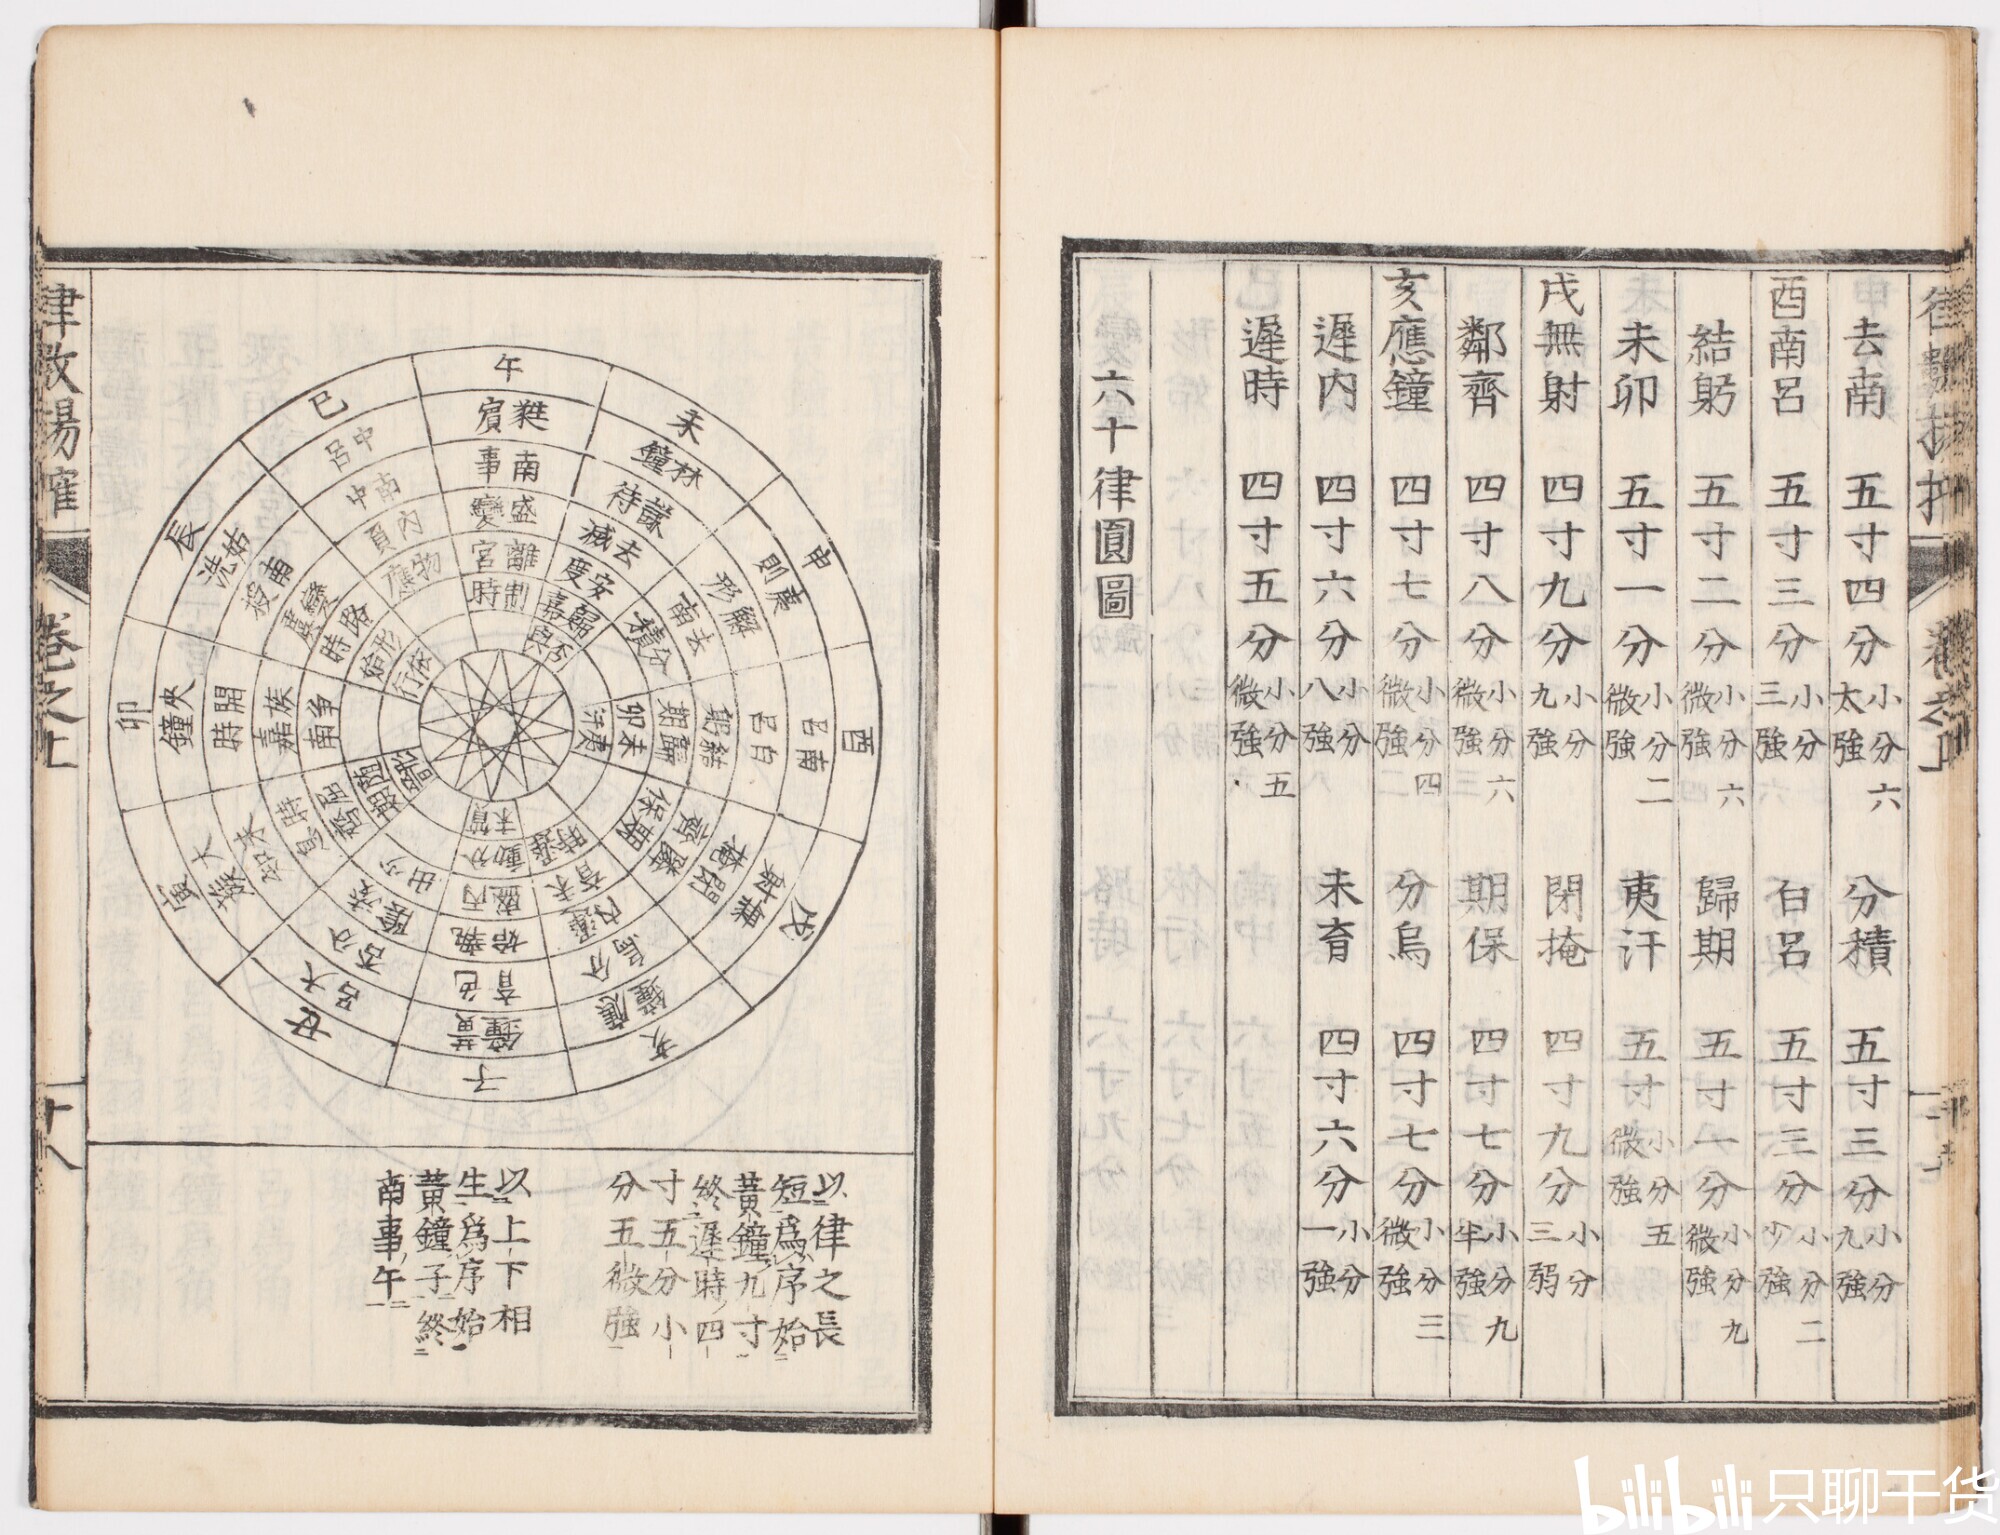 去南 五寸四分小分六太強 分積 五寸三分小分九強
酉南呂 五寸三分小分三強 白呂 五寸三分小分二少強
結躬 五寸二分小分六微強 歸期 五寸一分小分九微強
未卯 五寸一分小分二微強 夷汗 五寸小分五微強
戌無射 四寸九分小分九強 閉掩 四寸九分小分三弱
鄰齊 四寸八分小分六微強 期保 四寸七分小分九半強
亥應鐘 四寸七分小分四微強 分烏 四寸七分小分三微強
遲內 四寸六分小分八強 未育 四寸六分小分一強
遲時 四寸五分小分五微強
六十律圓圖
午
蕤賓
南事
盛變
離宮
制時
未
林鐘
謙待
去減
安度
歸嘉
否與
申
夷則
解形
去南
分積
酉
南呂
白呂
結躬
歸期
未卯
夷汗
戌
無射
閉掩
鄰齊
期保
亥
應鐘
分烏
遲內
未育
遲時
子
黃鐘
色育
執始
丙盛
分動
質末
丑
大呂
分否
凌陰
少出
寅
太族
未知
時息
屈齊
隨期
形晉
卯
夾鐘
開時
族嘉
爭南
辰
姑洗
南授
變虞
路時
形始
依行
巳
中呂
南中
內負
物應
以律之長
短爲序始
黃鐘九寸
終遲時四
寸五分小
分五微強
以上下相
生爲序始
黃鐘子終
南事午
卷之上
十八